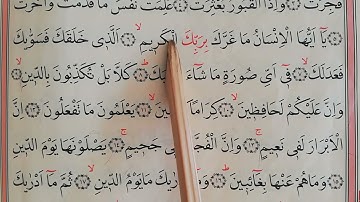 فُجِّرَتْ وَاِذَا الْقُبُورُ بُعْثِرَتْ عَلِمَتْ نَفْسٌ مَا قَدَّمَتْ وَاَخَّرَتْ
يَٓا اَيُّهَا الْاِنْسَانُ مَا غَرَّكَ بِرَبِّكَ الْكَرِيمِ اَلَّذٖى خَلَقَكَ فَسَوّٰيكَ
فَعَدَلَكَ فٖٓى اَىِّ صُورَةٍ مَا شَٓاءَ كَلَّا بَلْ تُكَذِّبُونَ بِالدّٖينِ
وَاِنَّ عَلَيْكُمْ لَحَافِظٖينَ كِرَامًا يَعْلَمُونَ مَا تَفْعَلُونَ اِنَّ
الْاَبْرَارَ لَفٖى نَعٖيمٍ وَاِنَّ الْفُجَّارَ جَحٖيمٍ يَصْلَوْنَهَا يَوْمَ الدّٖينِ
وَمَا هُمْ عَنْهَا بِغَٓائِبٖينَ مَا يَوْمُ الدّٖينِ ثُمَّ مَٓا اَدْرٰيكَ